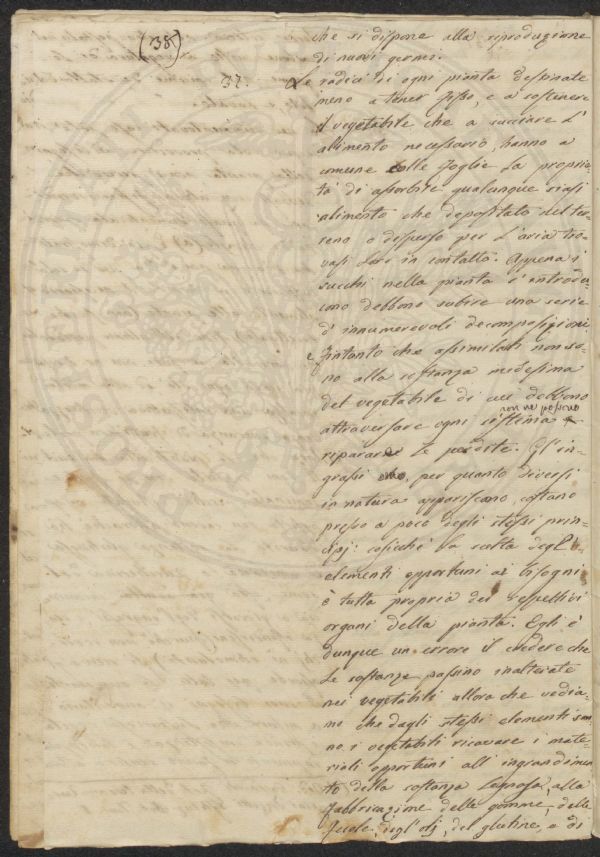 (38)
che si dispone alla riproduzione
di nuovi germi.
37. Le radici di ogni pianta destinate
meno a tener fisso, e a sostenere
il vegetabile che a succiare l'
alimento necessario, hanno a
comune colle foglie la proprie-
tà di assorbire qualunque siasi
alimento che depositato nel ter-
reno o disperso per l'aria tro-
vasi loro in contatto. Appena i
succhi nella pianta s'introdu-
cono debbono subire una serie
d'innumerevoli decomposizioni
e fintanto che assimilati non so-
no alla sostanza medesima
del vegetabile di cui debbono
attraversare ogni sistema non ne possono
riparare le perdite. Gl'in-
grassi, per quanto diversi
in natura appariscano, costano
presso a poco degli stessi prin-
cipj: cosicchè la scelta degl'
elementi opportuni ai bisogni
è tutta propria dei respettivi
organi della pianta. Egli è
dunque un errore il credere che
le sostanze passino inalterate
nei vegetabili allora che vedia-
mo che dagli stessi elementi san-
no i vegetabili ricavare i mate-
riali opportuni all'ingrandimen-
to della sostanza legnosa, alla
fabbricazione delle gomme, delle
fecole, degl'olj, del glutine, e di